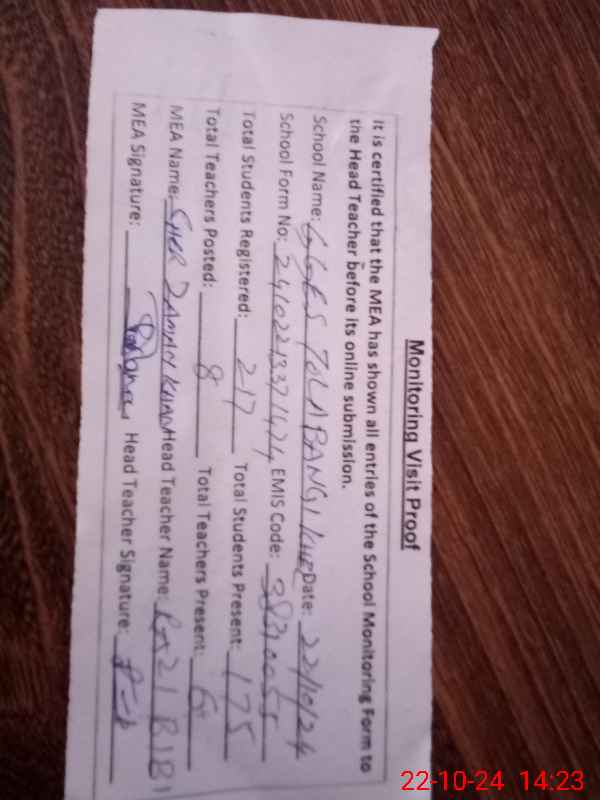 Monitoring Visit Proof
It is certified that the MEA has shown all entries of the School Monitoring Form to
the Head Teacher before its online submission.
School Name: GGES TOLA BANGI KHEL Date: 22/10/24
School Form No: EMIS Code:
Total Students Registered: 217 Total Students Present: 175
Total Teachers Posted: 8 Total Teachers Present: 6
MEA Name: SHER ZAMAN KHAN Head Teacher Name: BIBI
MEA Signature: Head Teacher Signature:
22-10-24 14:23